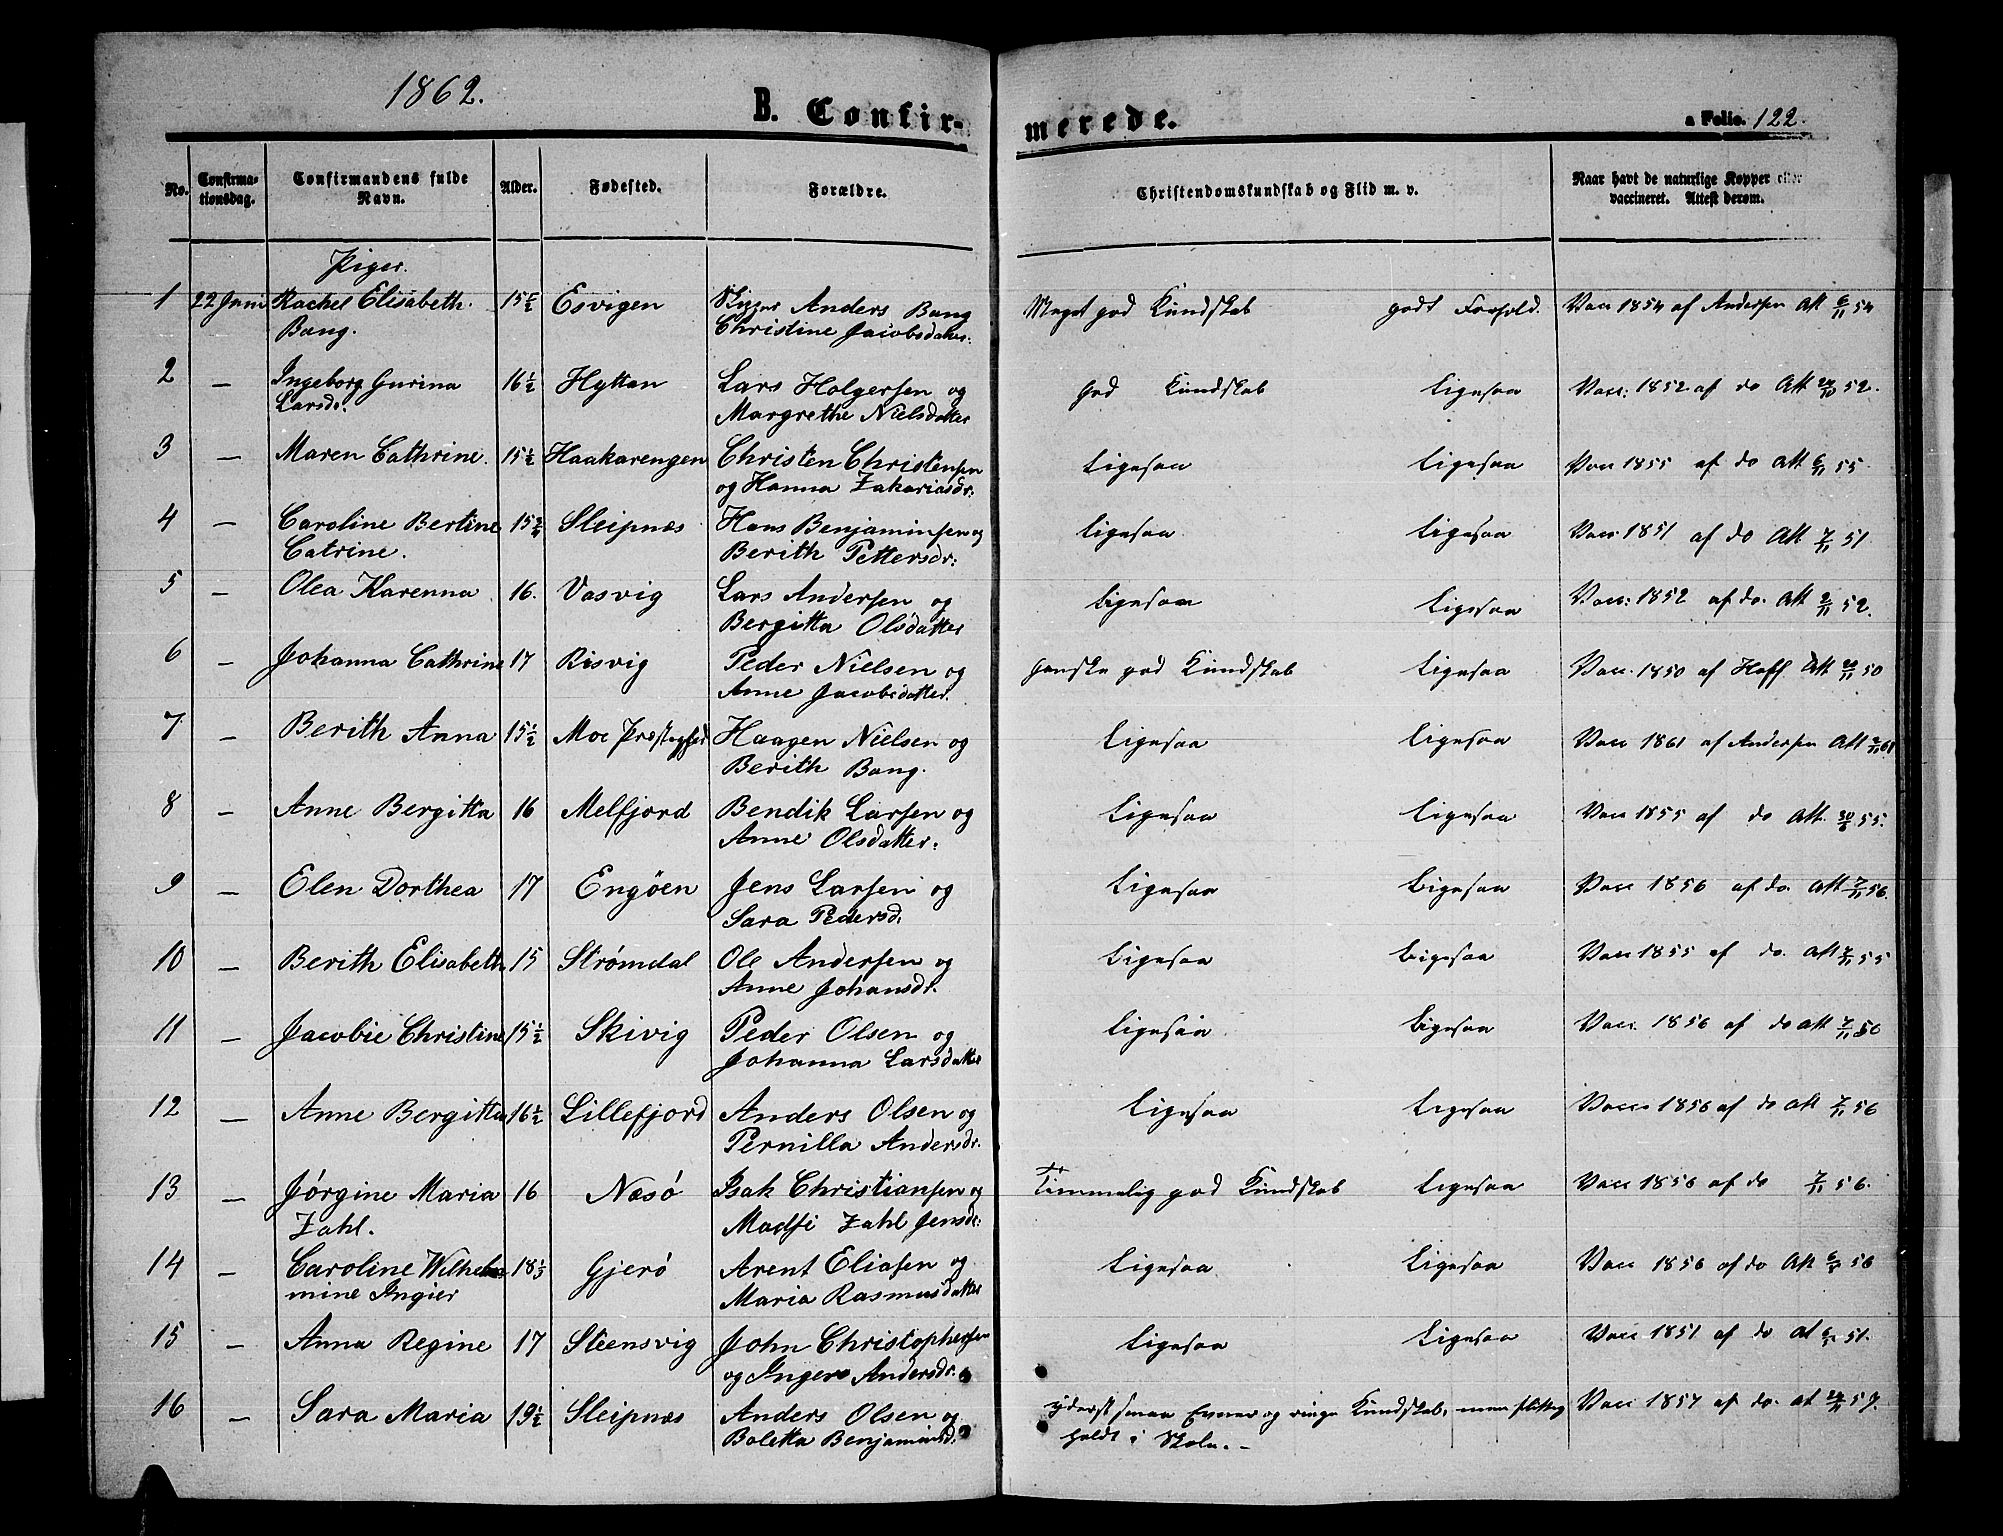 1862.
B. Confir-
merede.
a Folio. 122.
No. Confirma-tionsdag. Confirmandens fulde Navn. Alder. Fødested. Forældre. Christendomskundskab og Flid m. v. Naar havt de naturlige Kopper eller vaccineret. Attest derom.
Piger.
1 22 Juni Rachel Elisabeth 15 Esvigen Anders Bang Meget god Kundskab godt Forhold. Vacc 1854 af Andersen Att 6/11 54
Bang. Christine Jacobsdatter.
2 — Ingeborg Gurina 16½ Hyttan Lars Holgersen og god Kundskab Ligesaa Vacc: 1852 af do Att 52.
Larsdr. Margrethe Nielsdatter
3 — Maren Cathrine. 15½ Haakarengen Christen Christensen Ligesaa Ligesaa Vacc 1855 af do Att 6/11 55.
og Hanna Zakariasdr:
4 — Caroline Bertine 15¾ Sleipnæs Hans Benjaminsen og Ligesaa Ligesaa Vacc 1851 af do Att 7/11 51
Catrine. Berith Pettersdr:
5 — Olea Karenna 16. Vasvig Lars Andersen og Ligesaa Ligesaa Vacc: 1852 af do. Att 2/11 52.
Bergitta Olsdatter
6 — Johanna Cathrine 17 Risvig Peder Nielsen og ganske god Kundskab Ligesaa Vacc. 1850 af Hoff Att 50
Anne Jacobsdatter.
7 — Berith Anna 15½ Moe Præstegjeld Haagen Nielsen og Ligesaa Ligesaa Vacc 1861 af Andersen Att 61
Berith Bang.
8 — Anne Bergitta 16 Melfjord Bendik Larsen og Ligesaa Ligesaa Vacc 1855 af do Att. 55.
Anne Olsdatter:
9 — Elen Dorthea 17 Engøen Jens Larsen og Ligesaa Ligesaa Vacc 1856 af do. Att 7/11 56.
Sara Pedersd:
10 — Berith Elisabeth 15 Strømdal Ole Andersen og Ligesaa Ligesaa Vacc 1855 af do. Att 55
Anne Johansdr.
11 — Jacobie Christine 15½ Skivig Peder Olsen og Ligesaa Ligesaa Vacc. 1856 af do Att 7/11 56
Johanna Larsdatter
12 — Anne Bergitta 16½ Lillefjord Anders Olsen og Ligesaa Ligesaa Vacc 1856 af do Att 7/11 56
Pernilla Andersdr.
13 — Jørgine Maria 16 Næsø Isak Christiansen og Temmelig god Kundskab Ligesaa Vacc 1856 af do 7/11 56.
Zahl. Madsi Zahl Jensdr:
14 — Caroline Wilhel 18⅓ Gjerø Arent Eliasen og Ligesaa Ligesaa Vacc 1856 af do Att 56
mine Ingier Maria Rasmusdatter
15 — Anna Regine 17 Steensvig John Christophersen Ligesaa Ligesaa Vacc 1851 af do at 51.
og Inger Andersdr.
16 — Sara Maria 19½ Sleipnæs Anders Olsen og yderst smaa Evner og ringe Kundskab, men flittig Vacc 1857 af do. at 57.
Boletta Benjaminsd. holdt i Skole. -